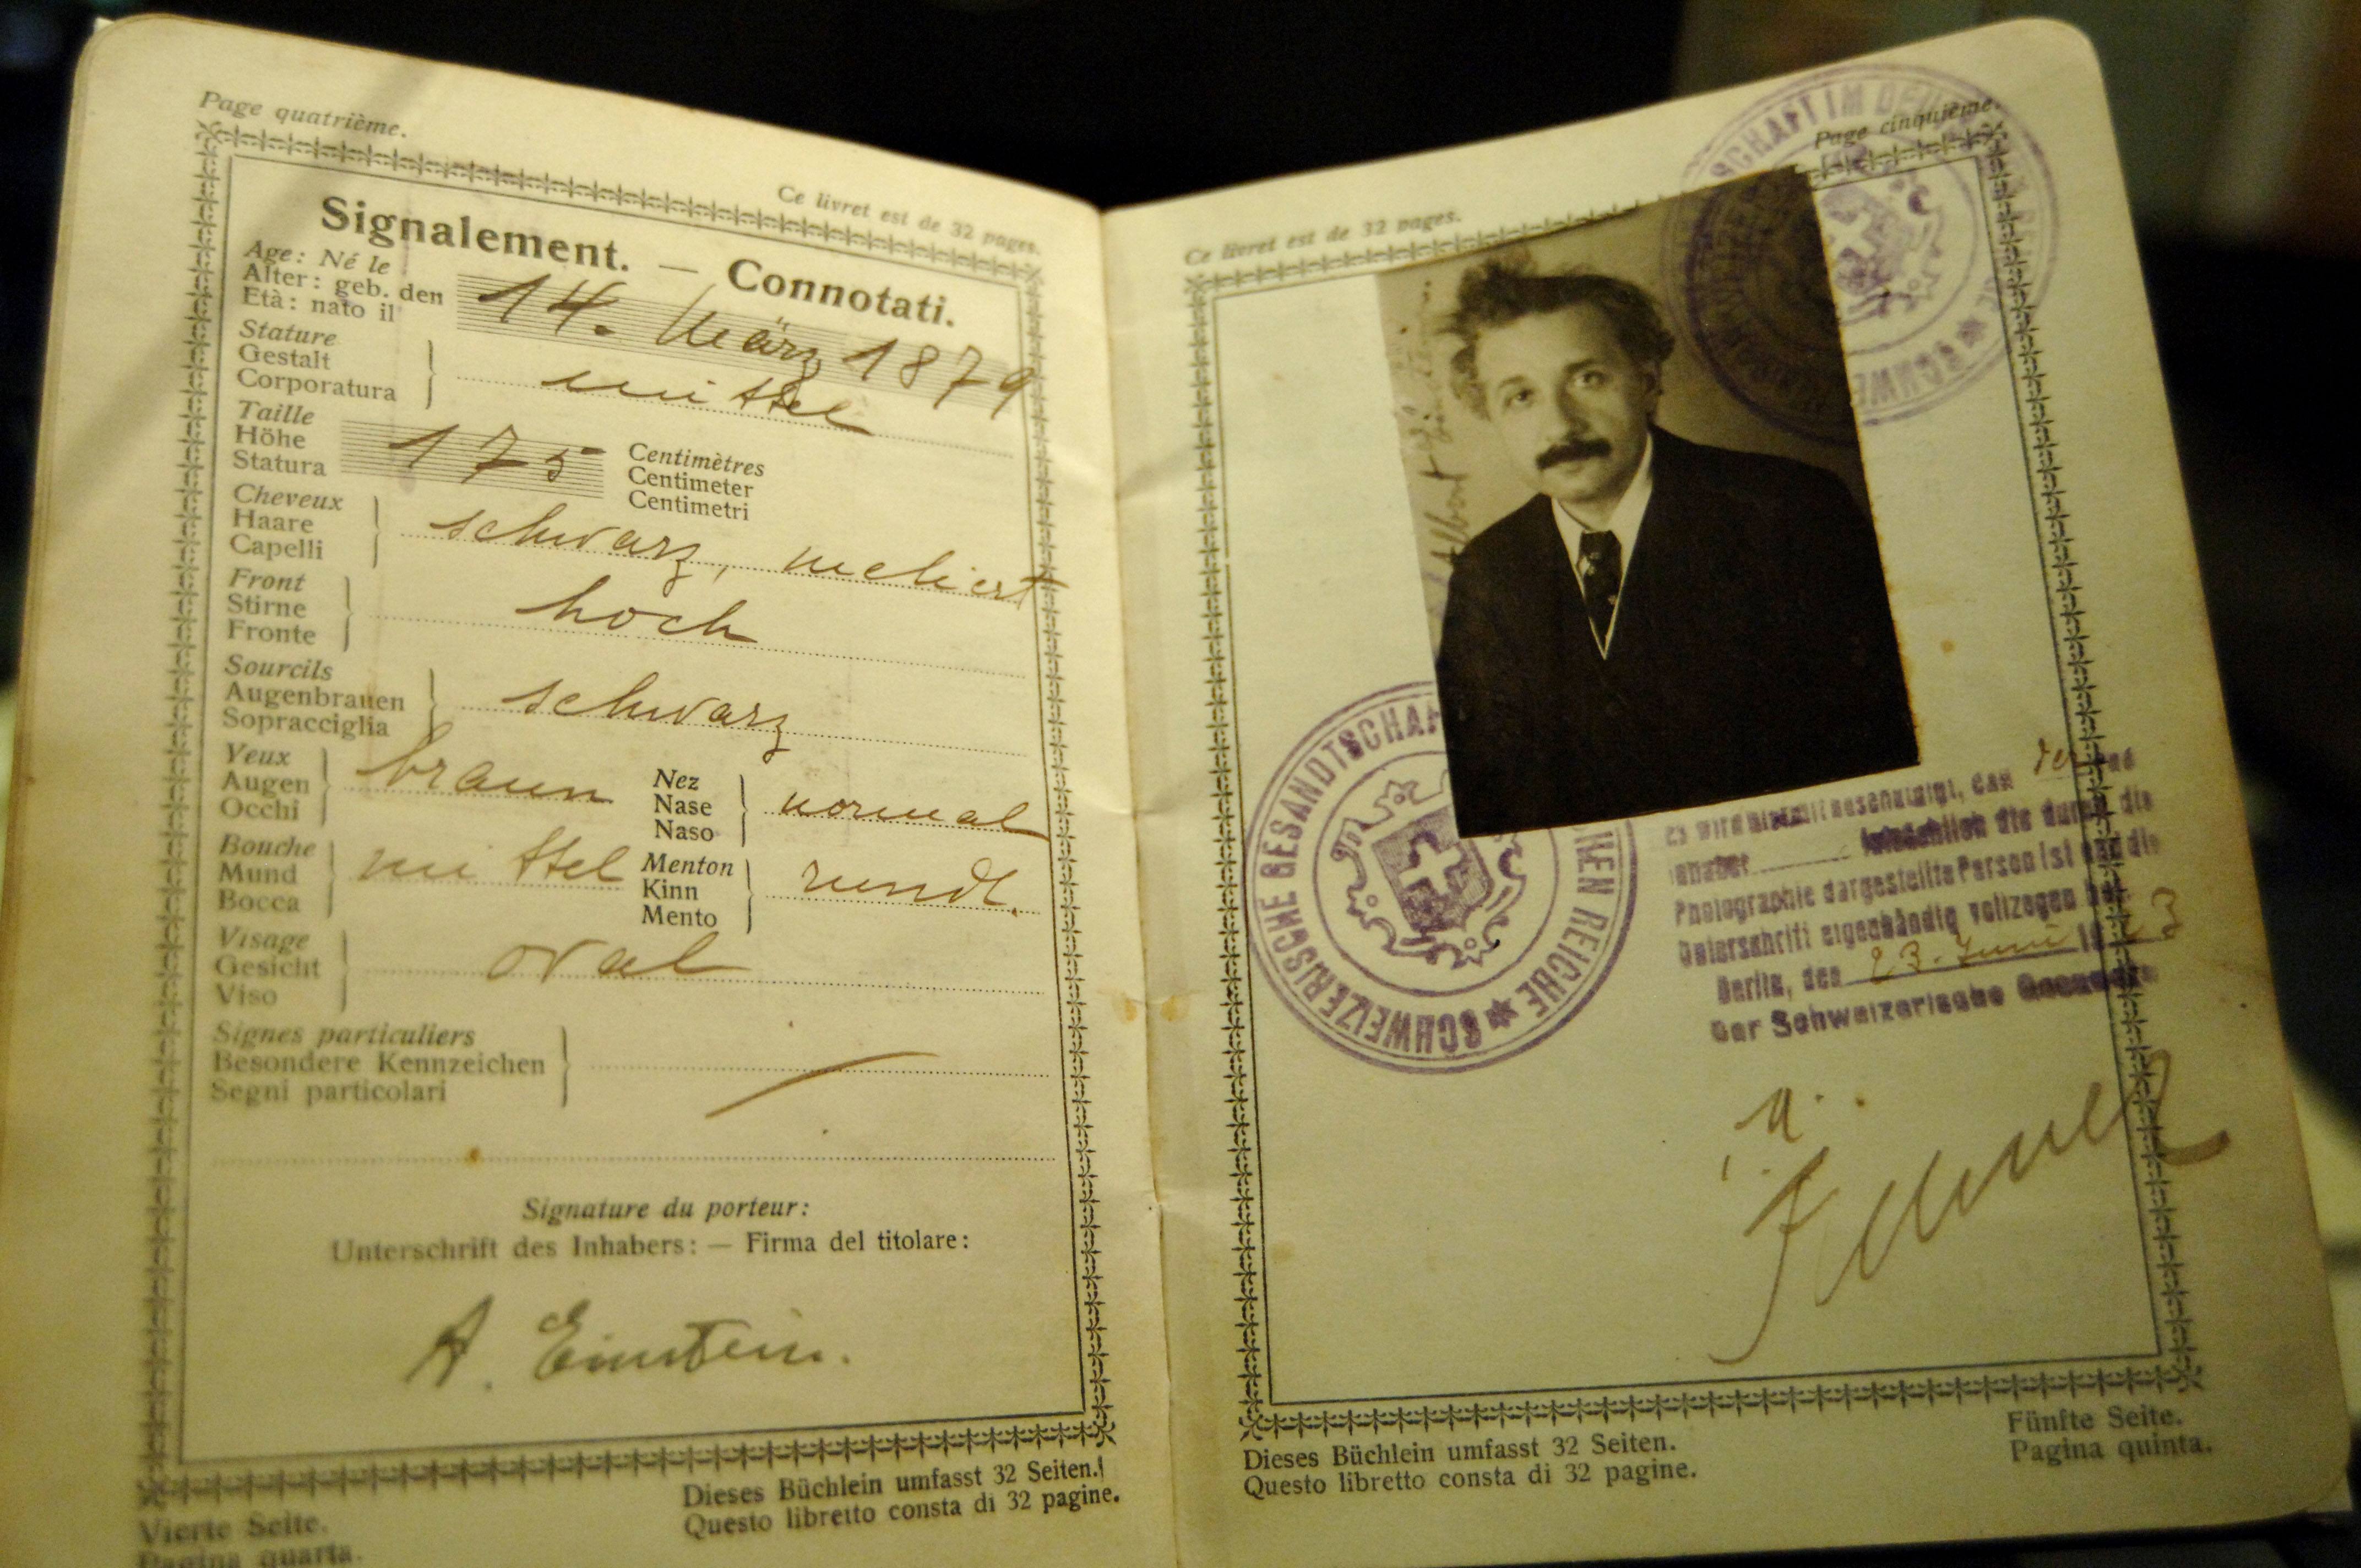 Page quatrième.
Ce livret est de 32 pages.
Signalement. — Connotati.
Age: Né le
Alter: geb. den
Età: nato il
14. März 1879
Stature
Gestalt
Corporatura
mittel
Taille
Höhe
Statura
175
Centimètres
Centimeter
Centimetri
Cheveux
Haare
Capelli
schwarz, meliert
Front
Stirne
Fronte
hoch
Sourcils
Augenbrauen
Sopracciglia
schwarz
Yeux
Augen
Occhi
braun
Nez
Nase
Naso
normal
Bouche
Mund
Bocca
mittel
Menton
Kinn
Mento
rund.
Visage
Gesicht
Viso
oval
Signes particuliers
Besondere Kennzeichen
Segni particolari
Signature du porteur:
Unterschrift des Inhabers: — Firma del titolare:
A. Einstein.
Vierte Seite.
Pagina quarta.
Dieses Büchlein umfasst 32 Seiten.
Questo libretto consta di 32 pagine.
Page cinquième.
Ce livret est de 32 pages.
SCHAFT IM DEU
REICHE ★ SCHWE
Albert Einstein
SCHWEIZERISCHE GESANDTSCHAF
CHEN REICHE ★
Es wird hiermit bescheinigt, dass der
Inhaber die durch die
Photographie dargestellte Person ist und die
Unterschrift eigenhändig vollzogen hat
Berlin, den 23. Juni 19
Der Schweizerische
Dieses Büchlein umfasst 32 Seiten.
Questo libretto consta di 32 pagine.
Fünfte Seite.
Pagina quinta.